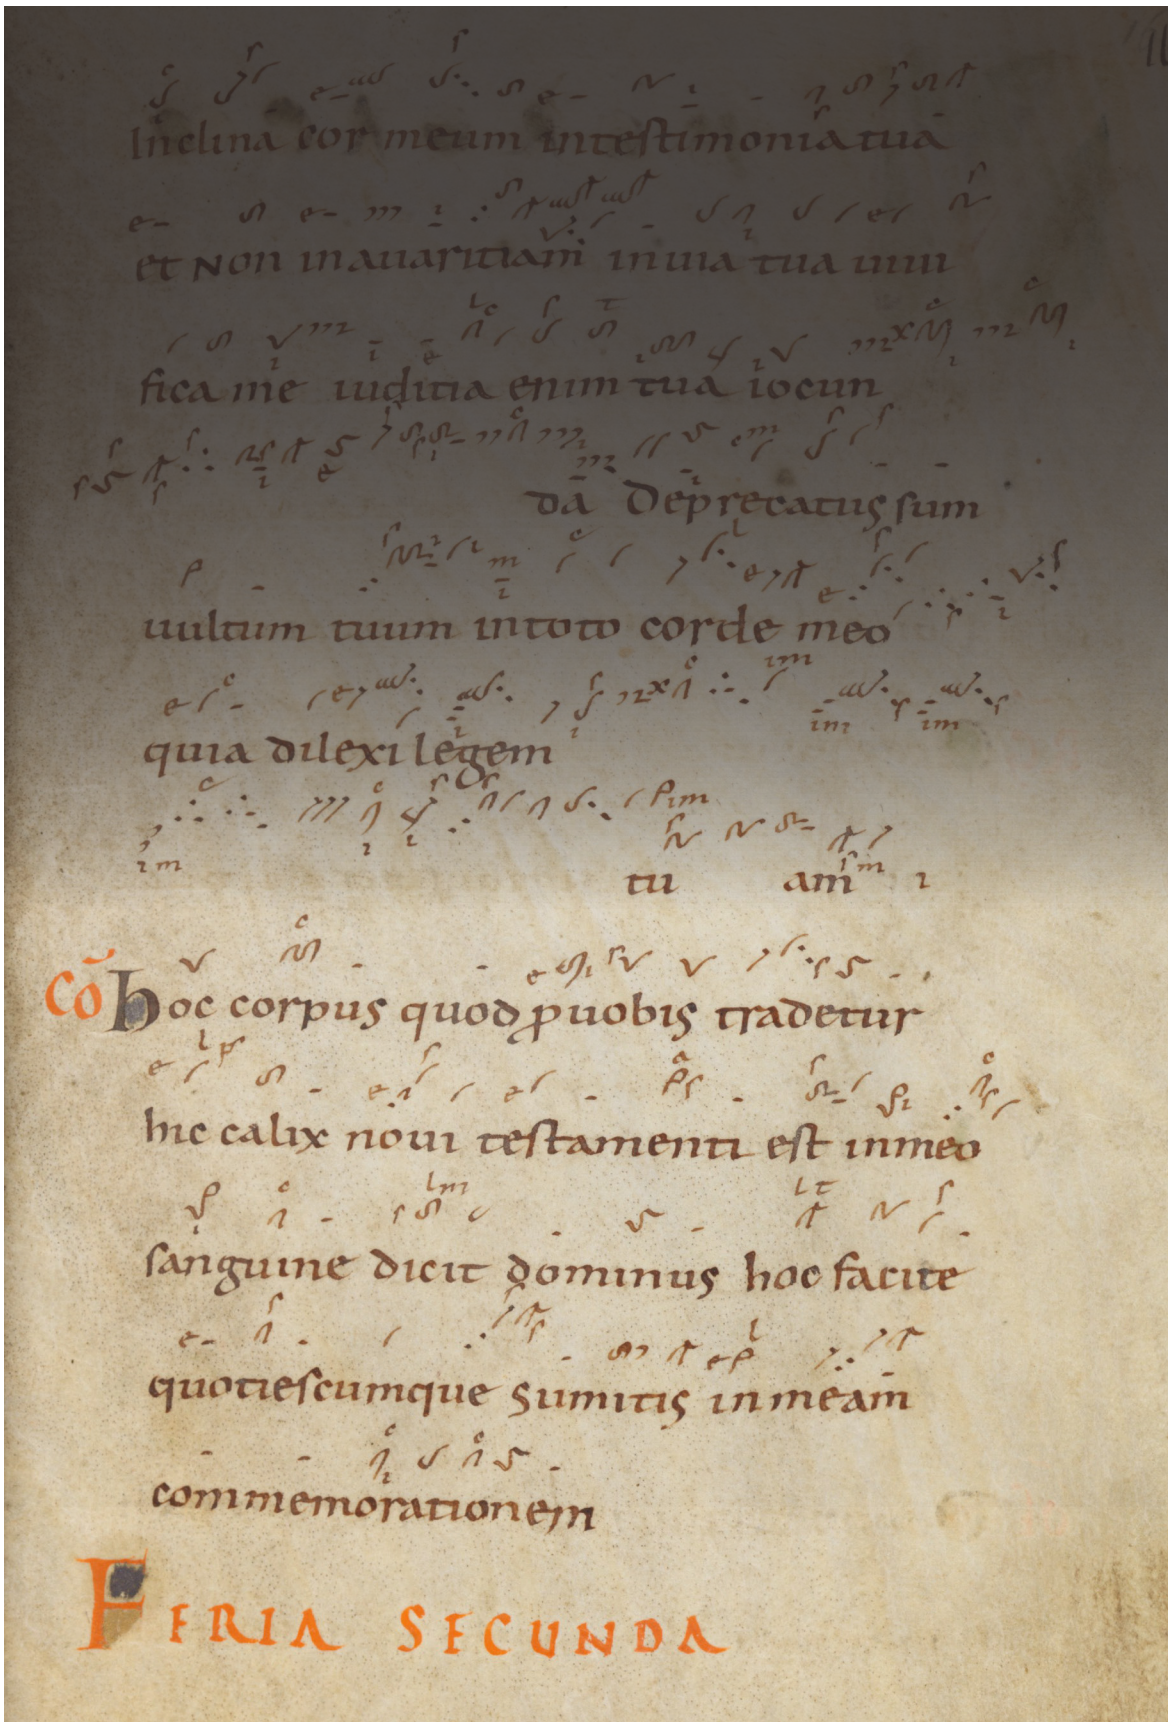 Inclina cor meum intestimonia tua
et Non inauaritiam inuia tua uiui
fica me iuditia enim tua iocun
da Deprecatus sum
uultum tuum intoto corde meo
quia dilexi legem
tu am
Cō hoc corpus quod ꝓuobis tradetur
hic calix noui testamenti est inmeo
sanguine dicit dominus hoc facite
quotiescumque sumitis inmeam
commemorationem
FERIA SECUNDA